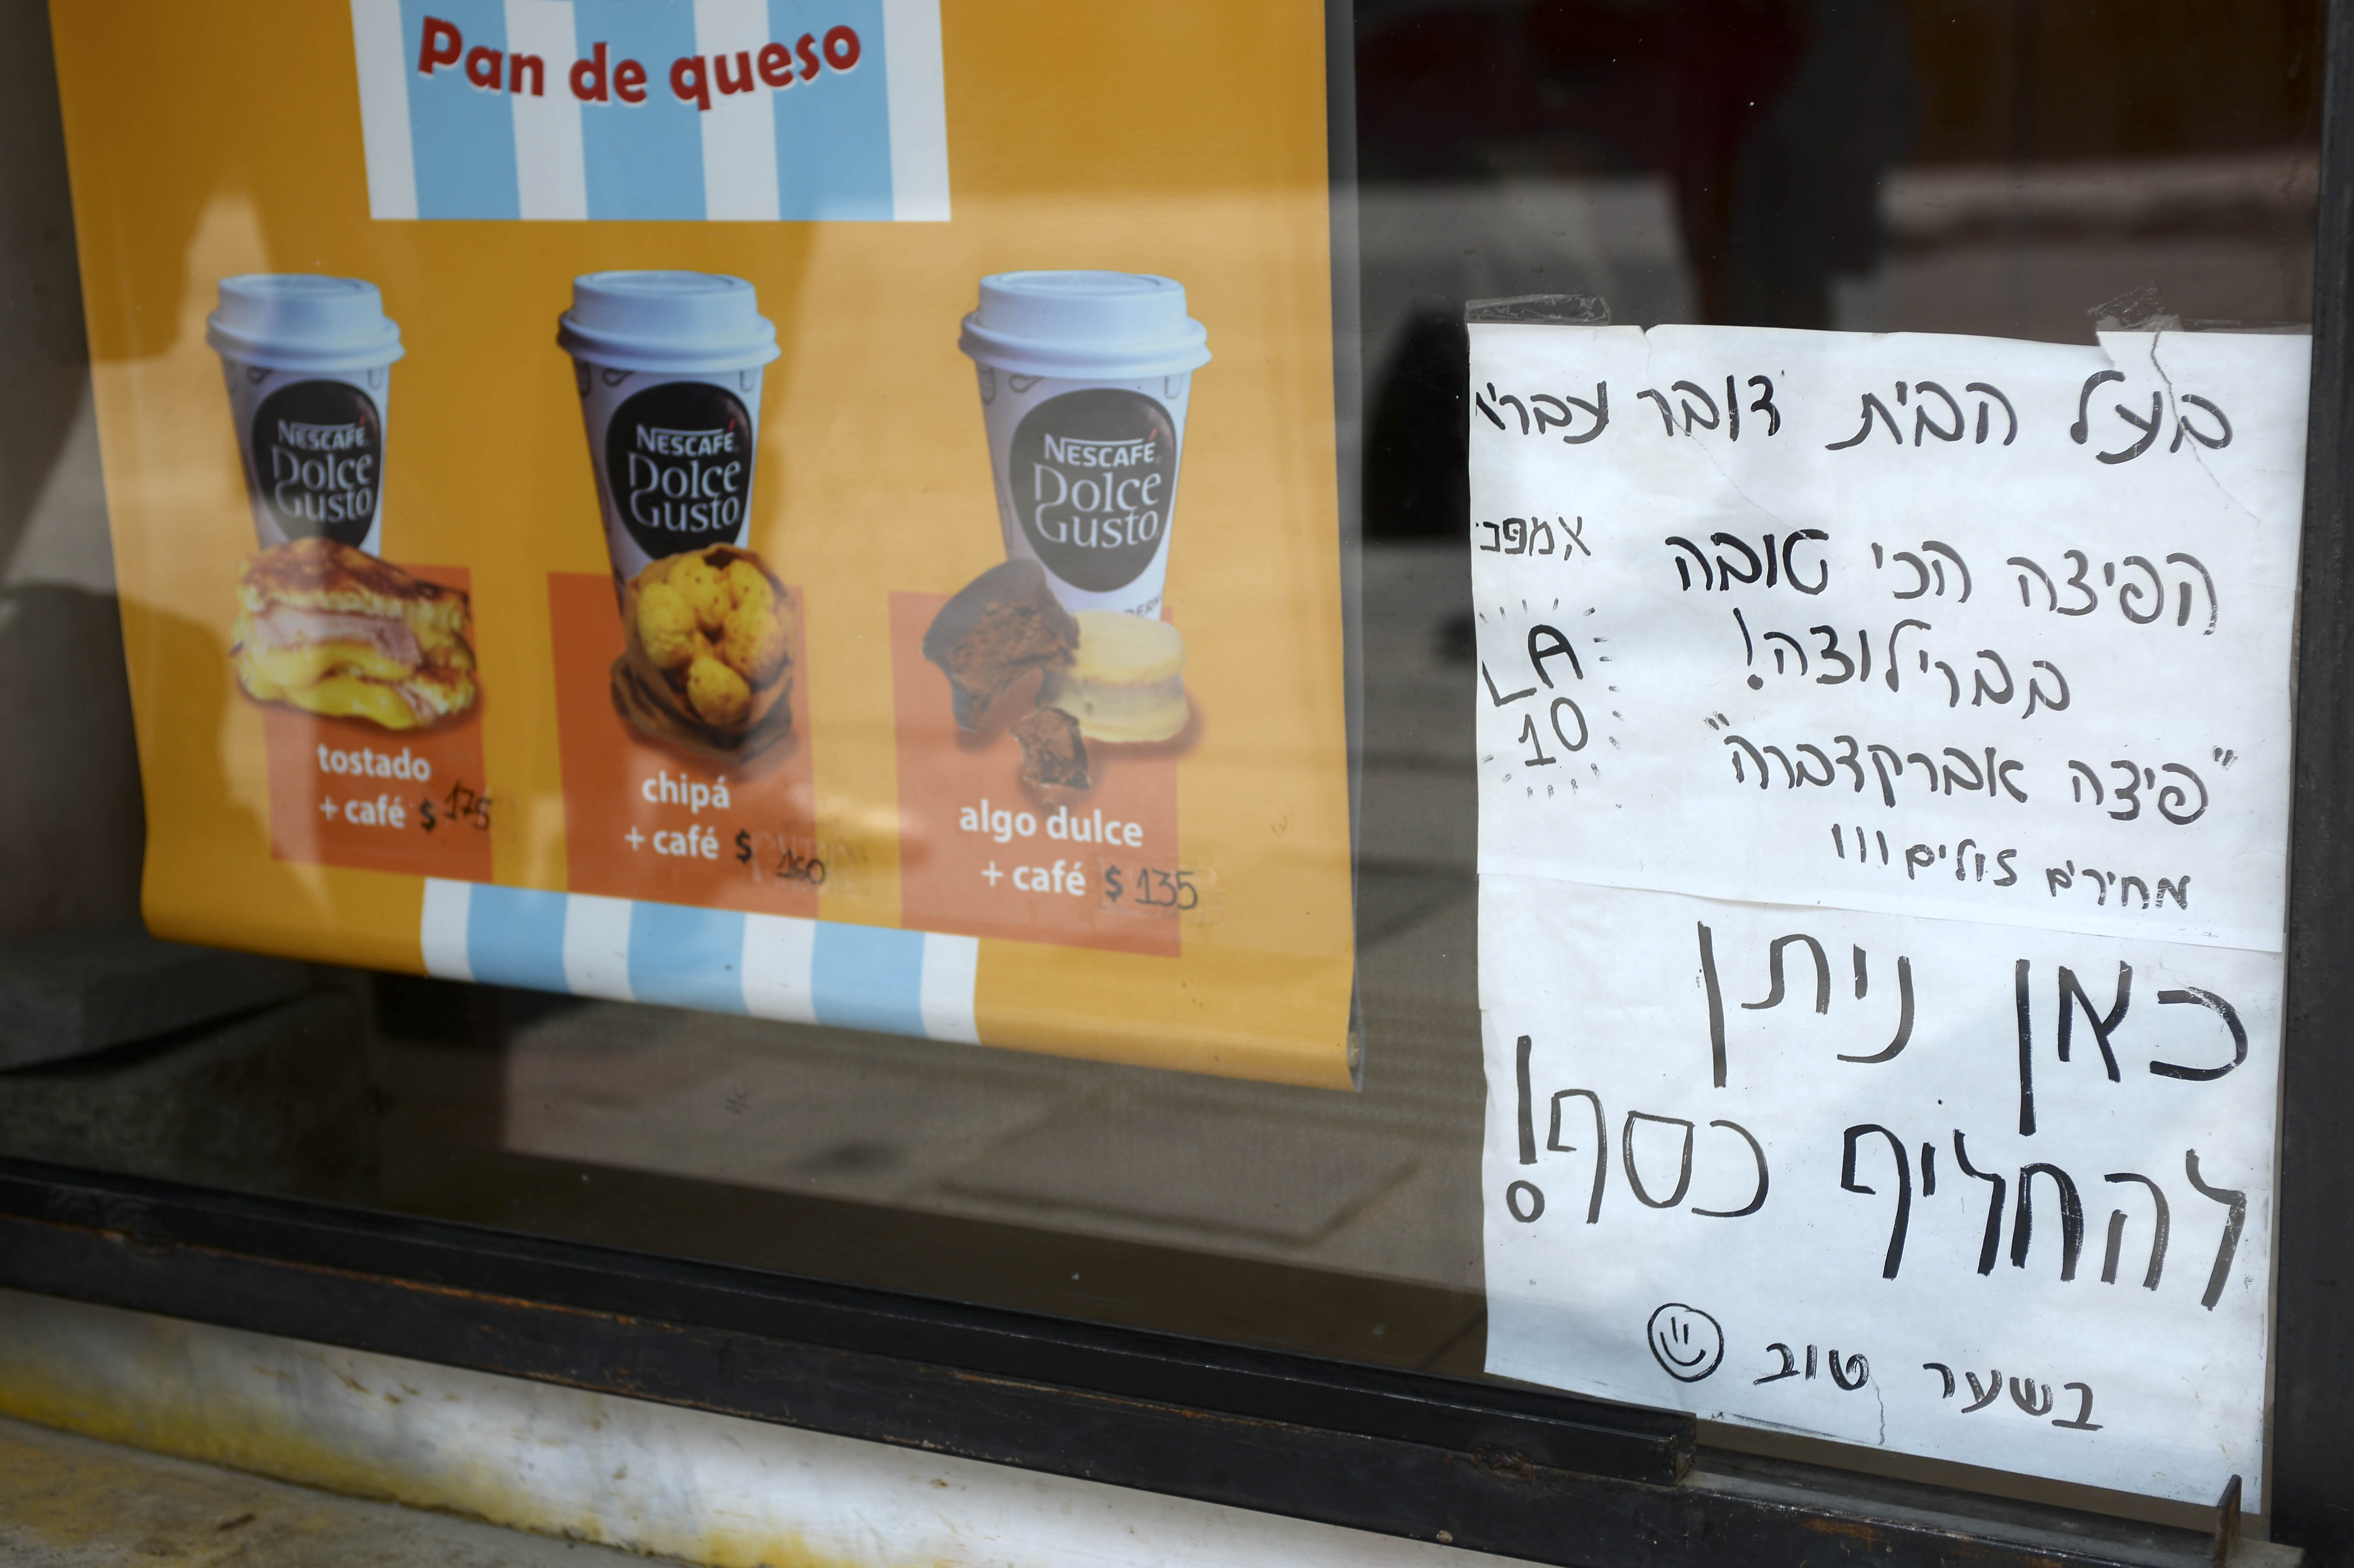 Pan de queso
NESCAFÉ
Dolce
Gusto
NESCAFÉ
Dolce
Gusto
NESCAFÉ
Dolce
Gusto
tostado
+ café $ 175
chipá
+ café $ 160
algo dulce
+ café $ 135
בעל הבית דובר עברית
הפיצה הכי טובה
בברילוצה!
"פיצה אברקדברה"
מחירים זולים !!!
LA
10
כאן ניתן
להחליף כסף!
בשער טוב